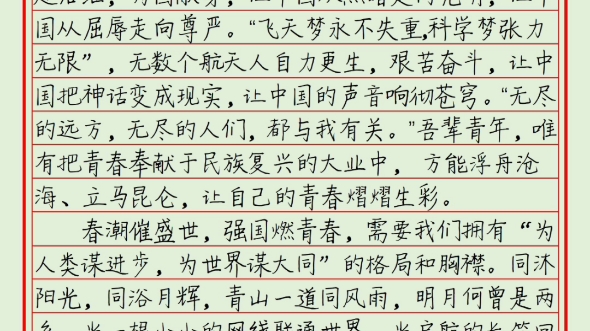 国从屈辱走向尊严。“飞天梦永不失重,科学梦张力
无限”，无数个航天人自力更生，艰苦奋斗，让中
国把神话变成现实，让中国的声音响彻苍穹。“无尽
的远方，无尽的人们，都与我有关。”吾辈青年，唯
有把青春奉献于民族复兴的大业中，方能浮舟沧
海、立马昆仑，让自己的青春熠熠生彩。
春潮催盛世，强国燃青春，需要我们拥有“为
人类谋进步，为世界谋大同”的格局和胸襟。同沐
阳光，同浴月辉，青山一道同风雨，明月何曾是两